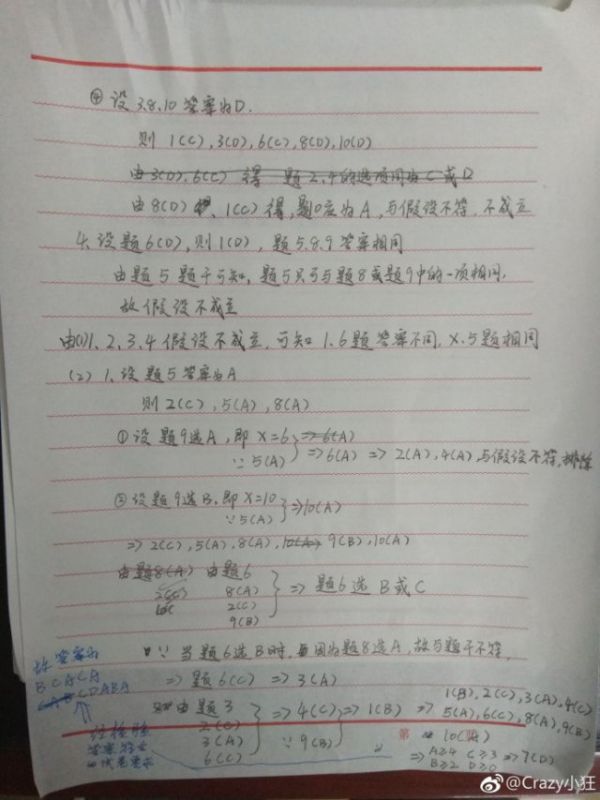 ④ 设 3.8.10 答案为D.
则 1(C), 3(D), 6(C), 8(D), 10(D)
由 3(D), 6(C) 得 题2.4的选项同为C或D
由 8(D) 1(C) 得, 题10应为A, 与假设不符, 不成立
4. 设题6(D), 则1(D), 题5.8.9答案相同
由题5题干可知, 题5只可与题8或题9中的一项相同,
故假设不成立
由(1) 1、2、3、4假设不成立, 可知 1.6题答案不同, X.5题相同
(2) 1. 设题5答案为A
则 2(C), 5(A), 8(A)
① 设题9选A, 即 X=6 ⇒ 6(A)
∵ 5(A) ⇒ 6(A) ⇒ 2(A), 4(A), 与假设不符, 排除
② 设题9选B, 即X=10
∵ 5(A) ⇒ 10(A)
⇒ 2(C), 5(A), 8(A), 10(A) 9(B), 10(A)
由题8(A) 由题6
2(C) 8(A)
2(C) ⇒ 题6选B或C
9(B)
∵ 当题6选B时, 因为题8选A, 故与题干不符,
⇒ 题6(C) ⇒ 3(A)
由题3
2(C)
3(A)
6(C)
⇒ 4(C) ⇒ 1(B)
∵ 9(B)
⇒ 1(B), 2(C), 3(A), 4(C)
5(A), 6(C), 8(A), 9(B)
10(A)
⇒ A≥4 C≥3 ⇒ 7(D)
B≥2 D≥0
第
故答案为
BCACA
CDABA
经检验
答案符合
@Crazy小狂